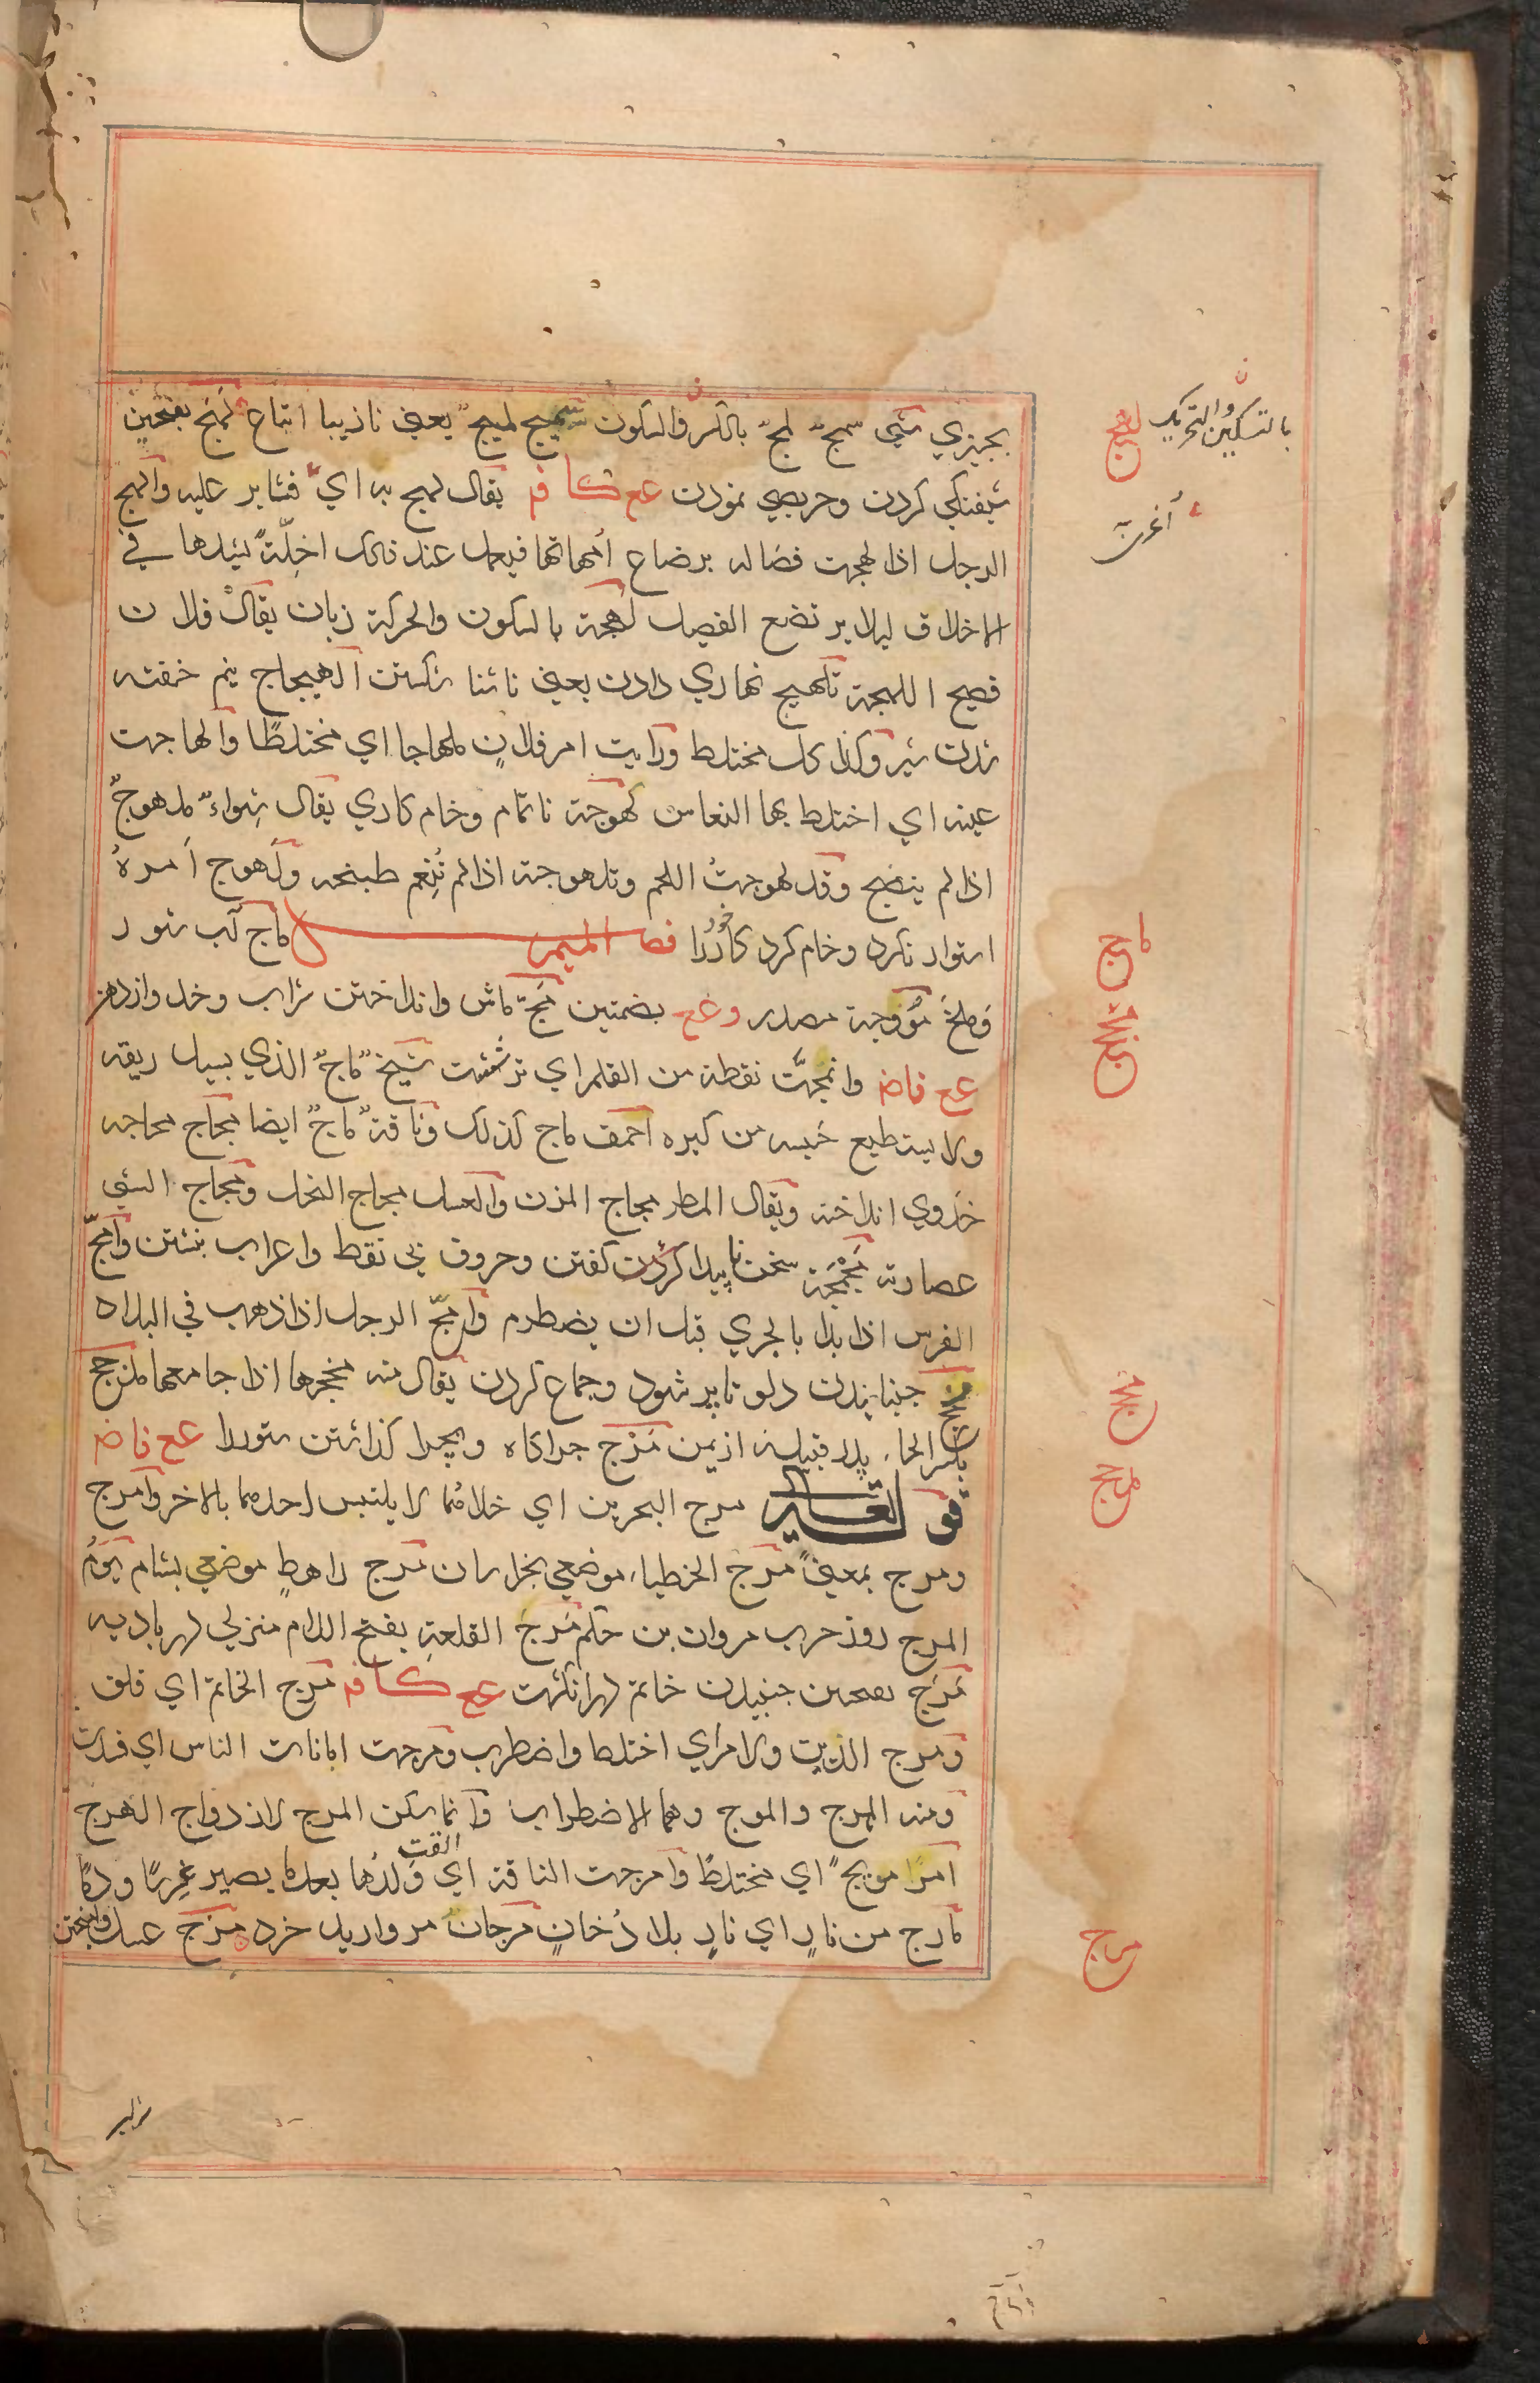 بچیزی شیٔ سمجٌ لمجٌ بالکسر والسکون سمیج لمیجٌ یعنی نازیبا اتباع لَهَج بفتحتین
شیفتکی کردن وحریصی نمودن عع کـافـ یقال لهج به ای فثابر علیه والهج
الرجل اذا لهجت فصاله برضاع اُمهاتها فیعمل عند ذلک اخِلّةً یشدها فی
الاخلاف لیلا یرتضع الفصیل لهجة بالسکون والحرکة زبان یقال فلان
فصیح اللهجة تلهیج نهاری دادن یعنی ناشتا شکستن الهیجاج نیم خفته
شدن شیر وکذا کل مختلط ورایت امر فلانٍ ملهاجا ای مختلطًا والهاجت
عینه ای اختلط بها النعاس لهوجة ناتمام وخام کاری یقال شِواءٌ ملهوجٌ
اذا لم ینضج وقد لهوجتُ اللحم وتلهوجته اذا لم تُنعِم طبخه ولَهوج اَمرهُ
استوار نکرد وخام کرد کار خود را فصل المیم ماج آب شور
وملخ مؤوجة مصدر وعع بضمتین مَجّ ماش وانداختن شراب وخدو از دهن
عع فاض وانمجّت نقطة من القلم ای ترششت شیخٌ ماجٌ الذی یسیل ریقه
ولا یستطیع حَبسه من کبره احمق ماج کذلک وناقة ماجٌ ایضا مجاج مجاجه
خدوی انداخته ویقال المطر مجاج المزن والعسل مجاج النحل ومجاج الشیٔ
عصارته مَجْمَجَة سخن ناپیدا کردن کفتن وحروف بی نقط واعراب نبشتن وامجّ
الفرس اذا بدا بالجری قبل ان یضطرم وامجّ الرجل اذا ذهب فی البلاد
مخج جنبانیدن دلو تا پر شود وجماع کردن یقال منه مخجها اذا جامعها مذحج
بکسر الحاء پدر قبیلهٔ از یمن مَرْج چراکاه وبچرا کذاشتن ستور را عع فاض
قو تعالی مرج البحرین ای خلاهُما لا یلتبس احدهما بالاخر وامرج
ومرج بمعنیً مرج الخطباء موضعی بخراسان مَرج راهطٍ موضعی بشام یَوْمُ
المرج روز حرب مروان بن حَکم مَرجُ القلعةِ بفتح اللام منزلی بهر بادیه
مَرَج بفتحتین جنبیدن خاتم در انکشت عع کـافـ مَرِج الخاتم ای قلق
ومرج الدین والامر ای اختلط واضطرب ومَرجت امانات الناس ای فسدت
ومنه الهرج والمرج وهما الاضطراب وانما یسکن المرج لازدواج الهرج
امرٌ مریجٌ ای مختلطٌ وامرجت الناقة ای القت وَلَدَها بعد ما یصیر غِرسًا ودمًا
مارج من نارٍ ای نارٍ بلا دُخانٍ مَرجان مروارید خرد مزج عسل وآمیختن
لهج
بالتسکین والتحریک
أغریٰ
ماج
مجج
مخج
مرج
مزج